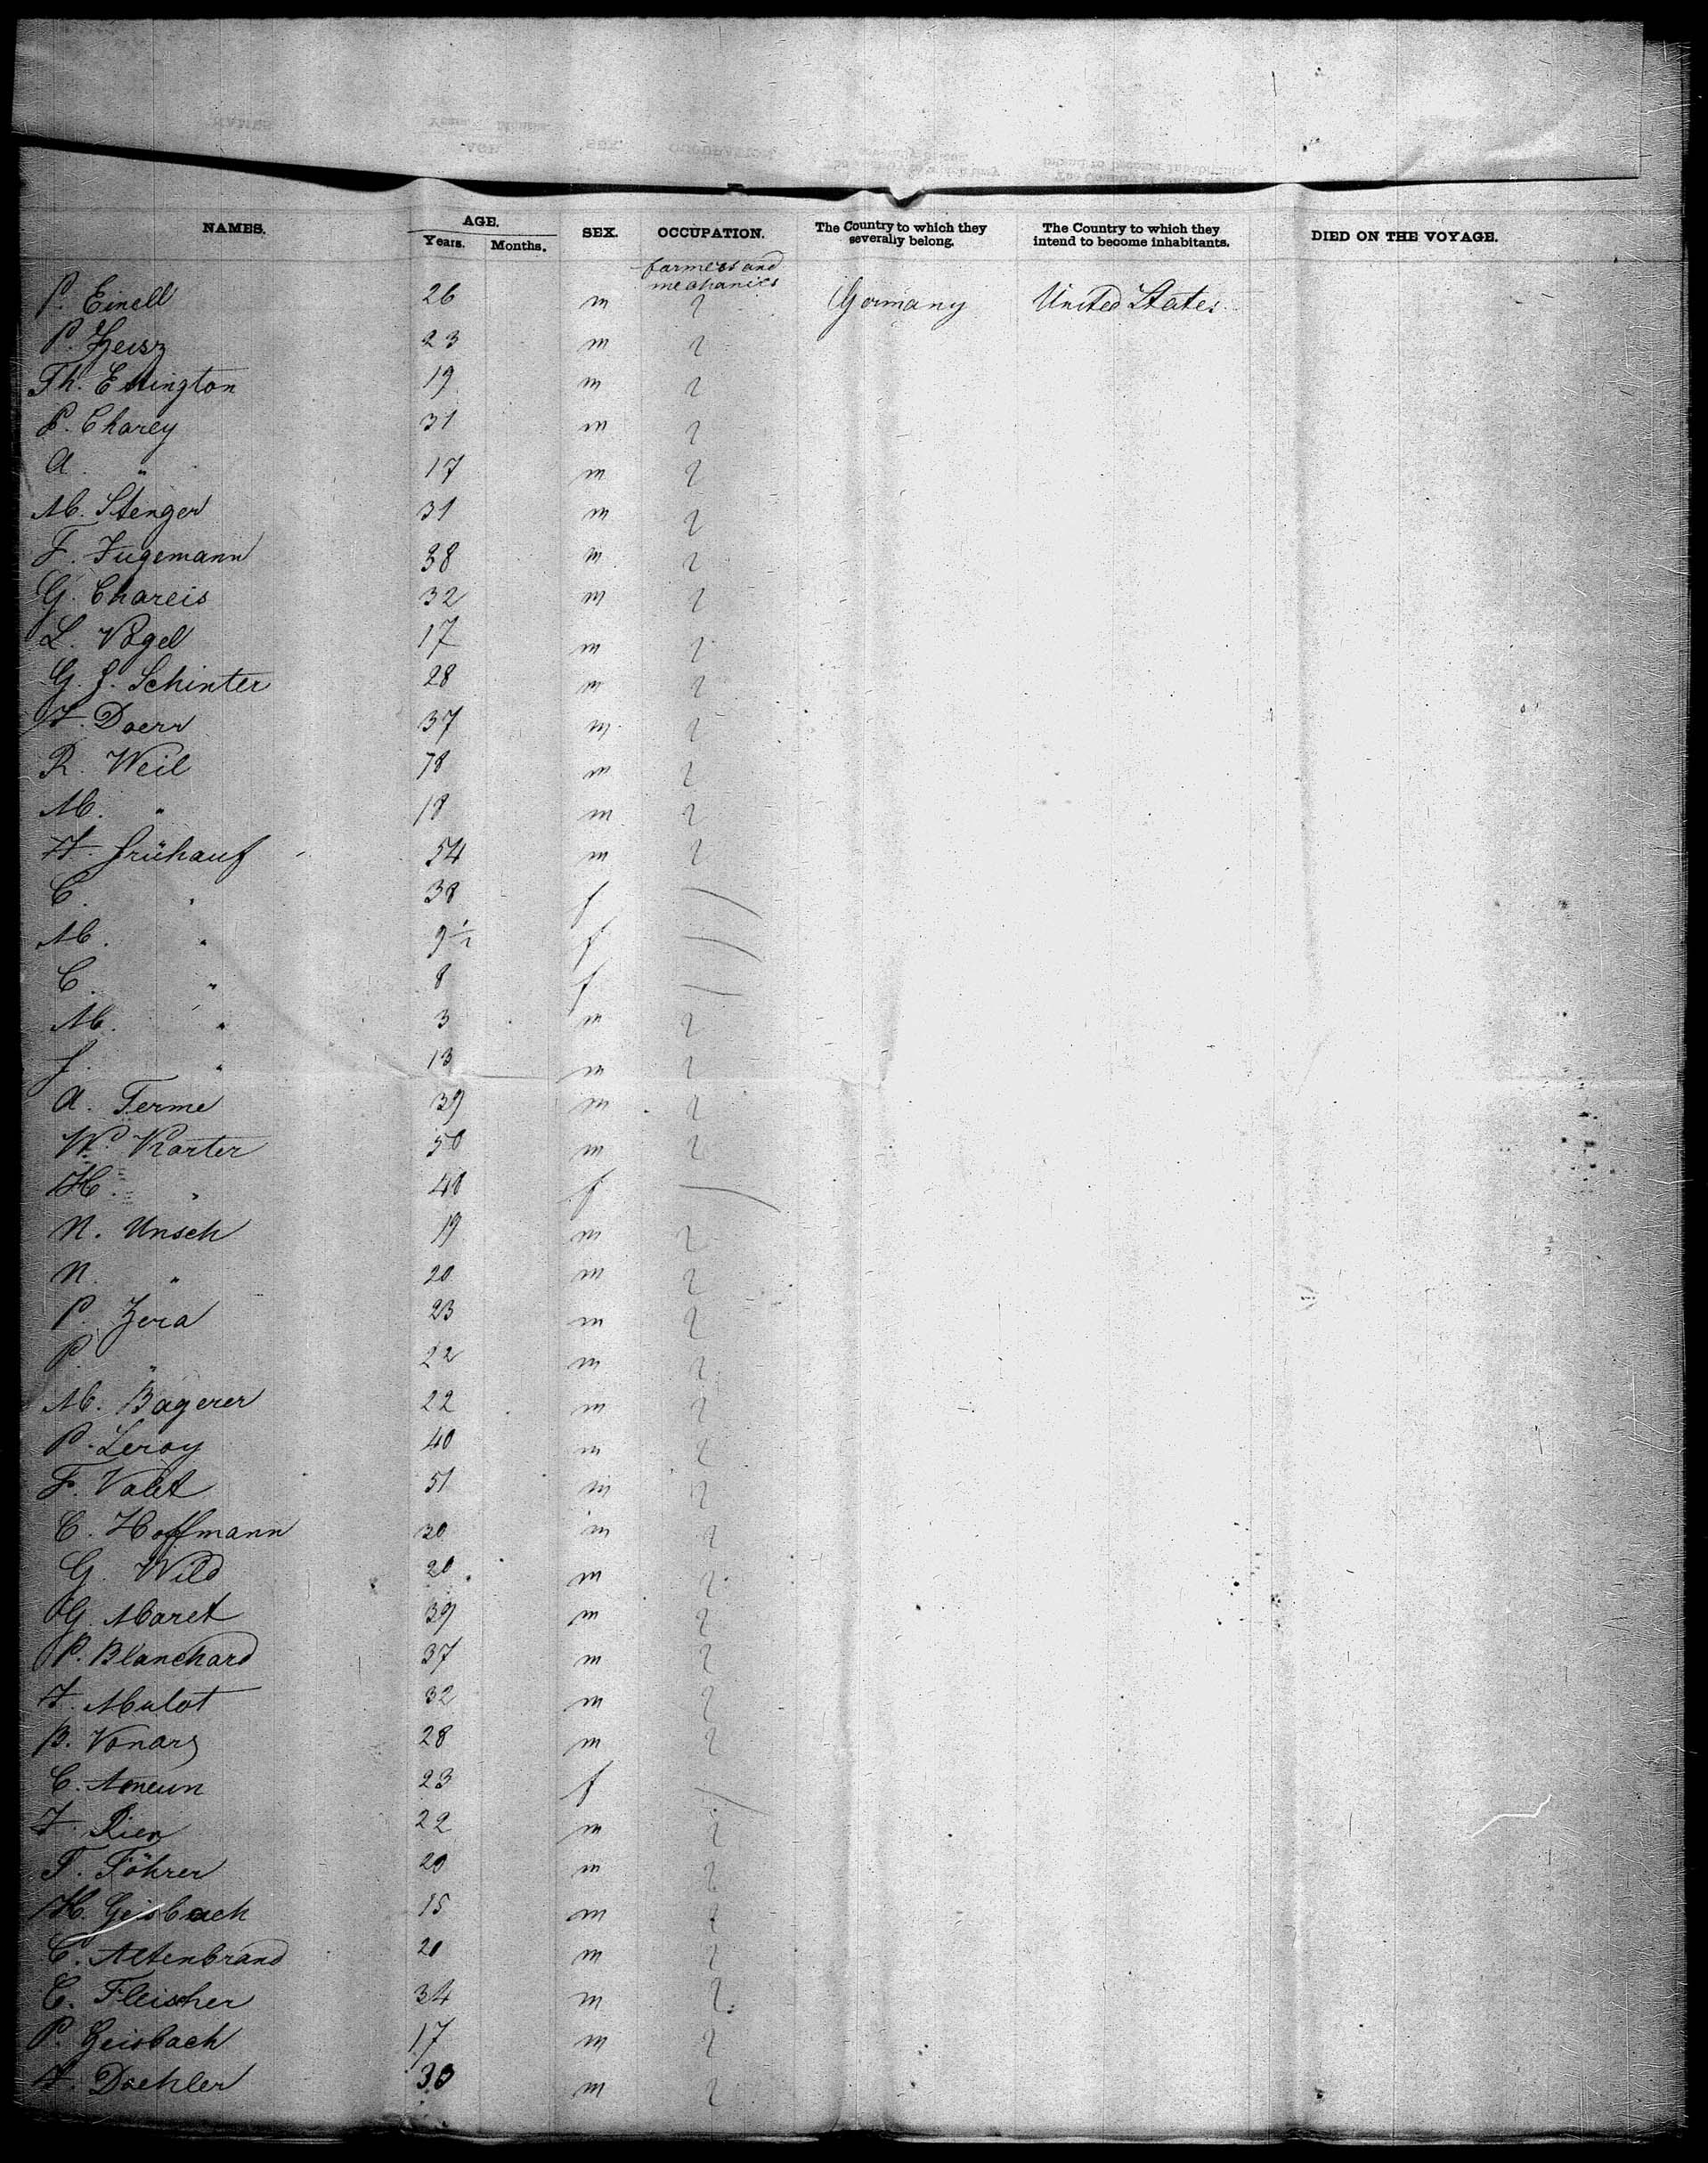 NAMES. AGE. SEX. OCCUPATION. The Country to which they severally belong. The Country to which they intend to become inhabitants. DIED ON THE VOYAGE.
Years. Months.
farmers and
mechanics
P. Einell 26 m " Germany United States
P. Zeisz 23 m "
Th. Essington 19 m "
P. Charey 31 m "
A. " 17 m "
M. Stenger 31 m "
F. Fugemann 38 m "
G. Chareis 32 m "
L. Vogel 17 m "
G. J. Schinter 28 m "
F. Doerr 37 m "
R. Weil 78 m "
M. " 18 m "
H. Frühauf 54 m "
C. " 38 f —
M. " 9½ f —
C. " 8 f —
M. " 3 m "
J. " 13 m "
A. Ferme 39 m "
W. Karter 50 m "
H. " 40 f —
N. Unsch 19 m "
N. " 20 m "
P. Zera 23 m "
P. " 22 m "
M. Bagerer 22 m "
P. Leroy 40 m "
F. Valet 51 m "
C. Hoffmann 30 m "
G. Wild 20 m "
G. Maret 39 m "
P. Blanchard 37 m "
F. Mulot 32 m "
B. Vonars 28 m "
C. Ameun 23 f —
F. Rien 22 m "
F. Föhrer 20 m "
H. Geisbach 15 m "
C. Altenbrand 20 m "
C. Fleischer 34 m "
P. Geisbach 17 m "
F. Daehler 30 m "